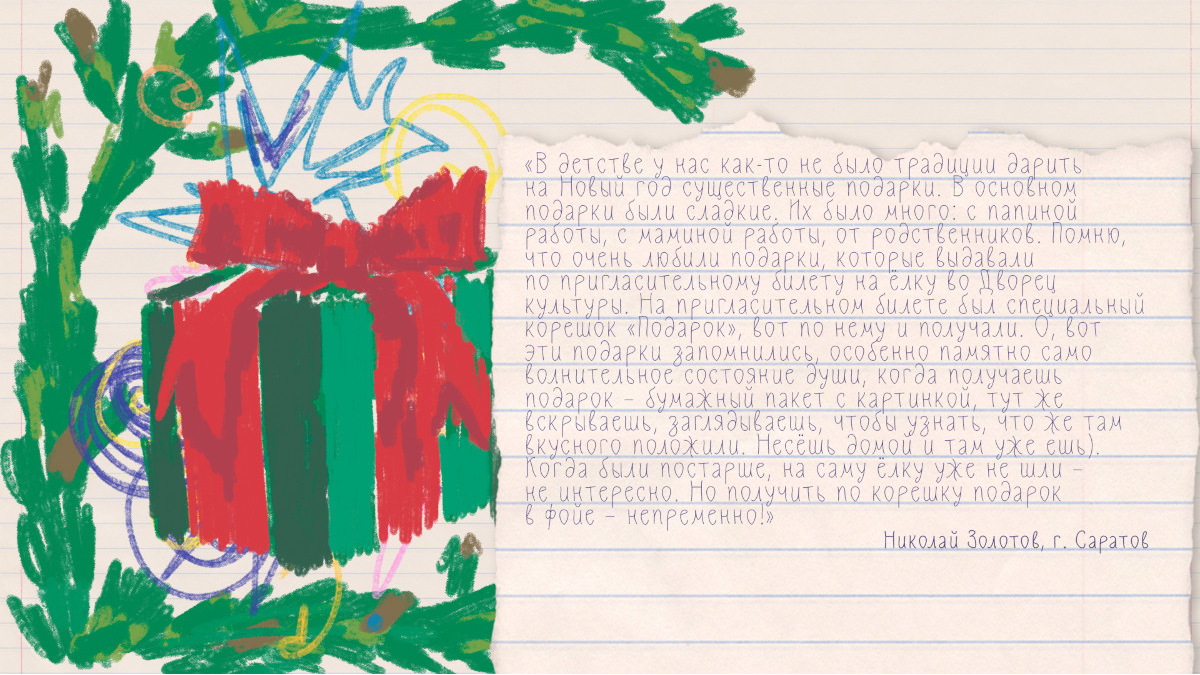 «В детстве у нас как-то не было традиции дарить
на Новый год существенные подарки. В основном
подарки были сладкие. Их было много: с папиной
работы, с маминой работы, от родственников. Помню,
что очень любили подарки, которые выдавали
по пригласительному билету на ёлку во Дворец
культуры. На пригласительном билете был специальный
корешок «Подарок», вот по нему и получали. О, вот
эти подарки запомнились, особенно памятно само
волнительное состояние души, когда получаешь
подарок – бумажный пакет с картинкой, тут же
вскрываешь, заглядываешь, чтобы узнать, что же там
вкусного положили. Несёшь домой и там уже ешь).
Когда были постарше, на саму ёлку уже не шли –
не интересно. Но получить по корешку подарок
в фойе – непременно!»
Николай Золотов, г. Саратов